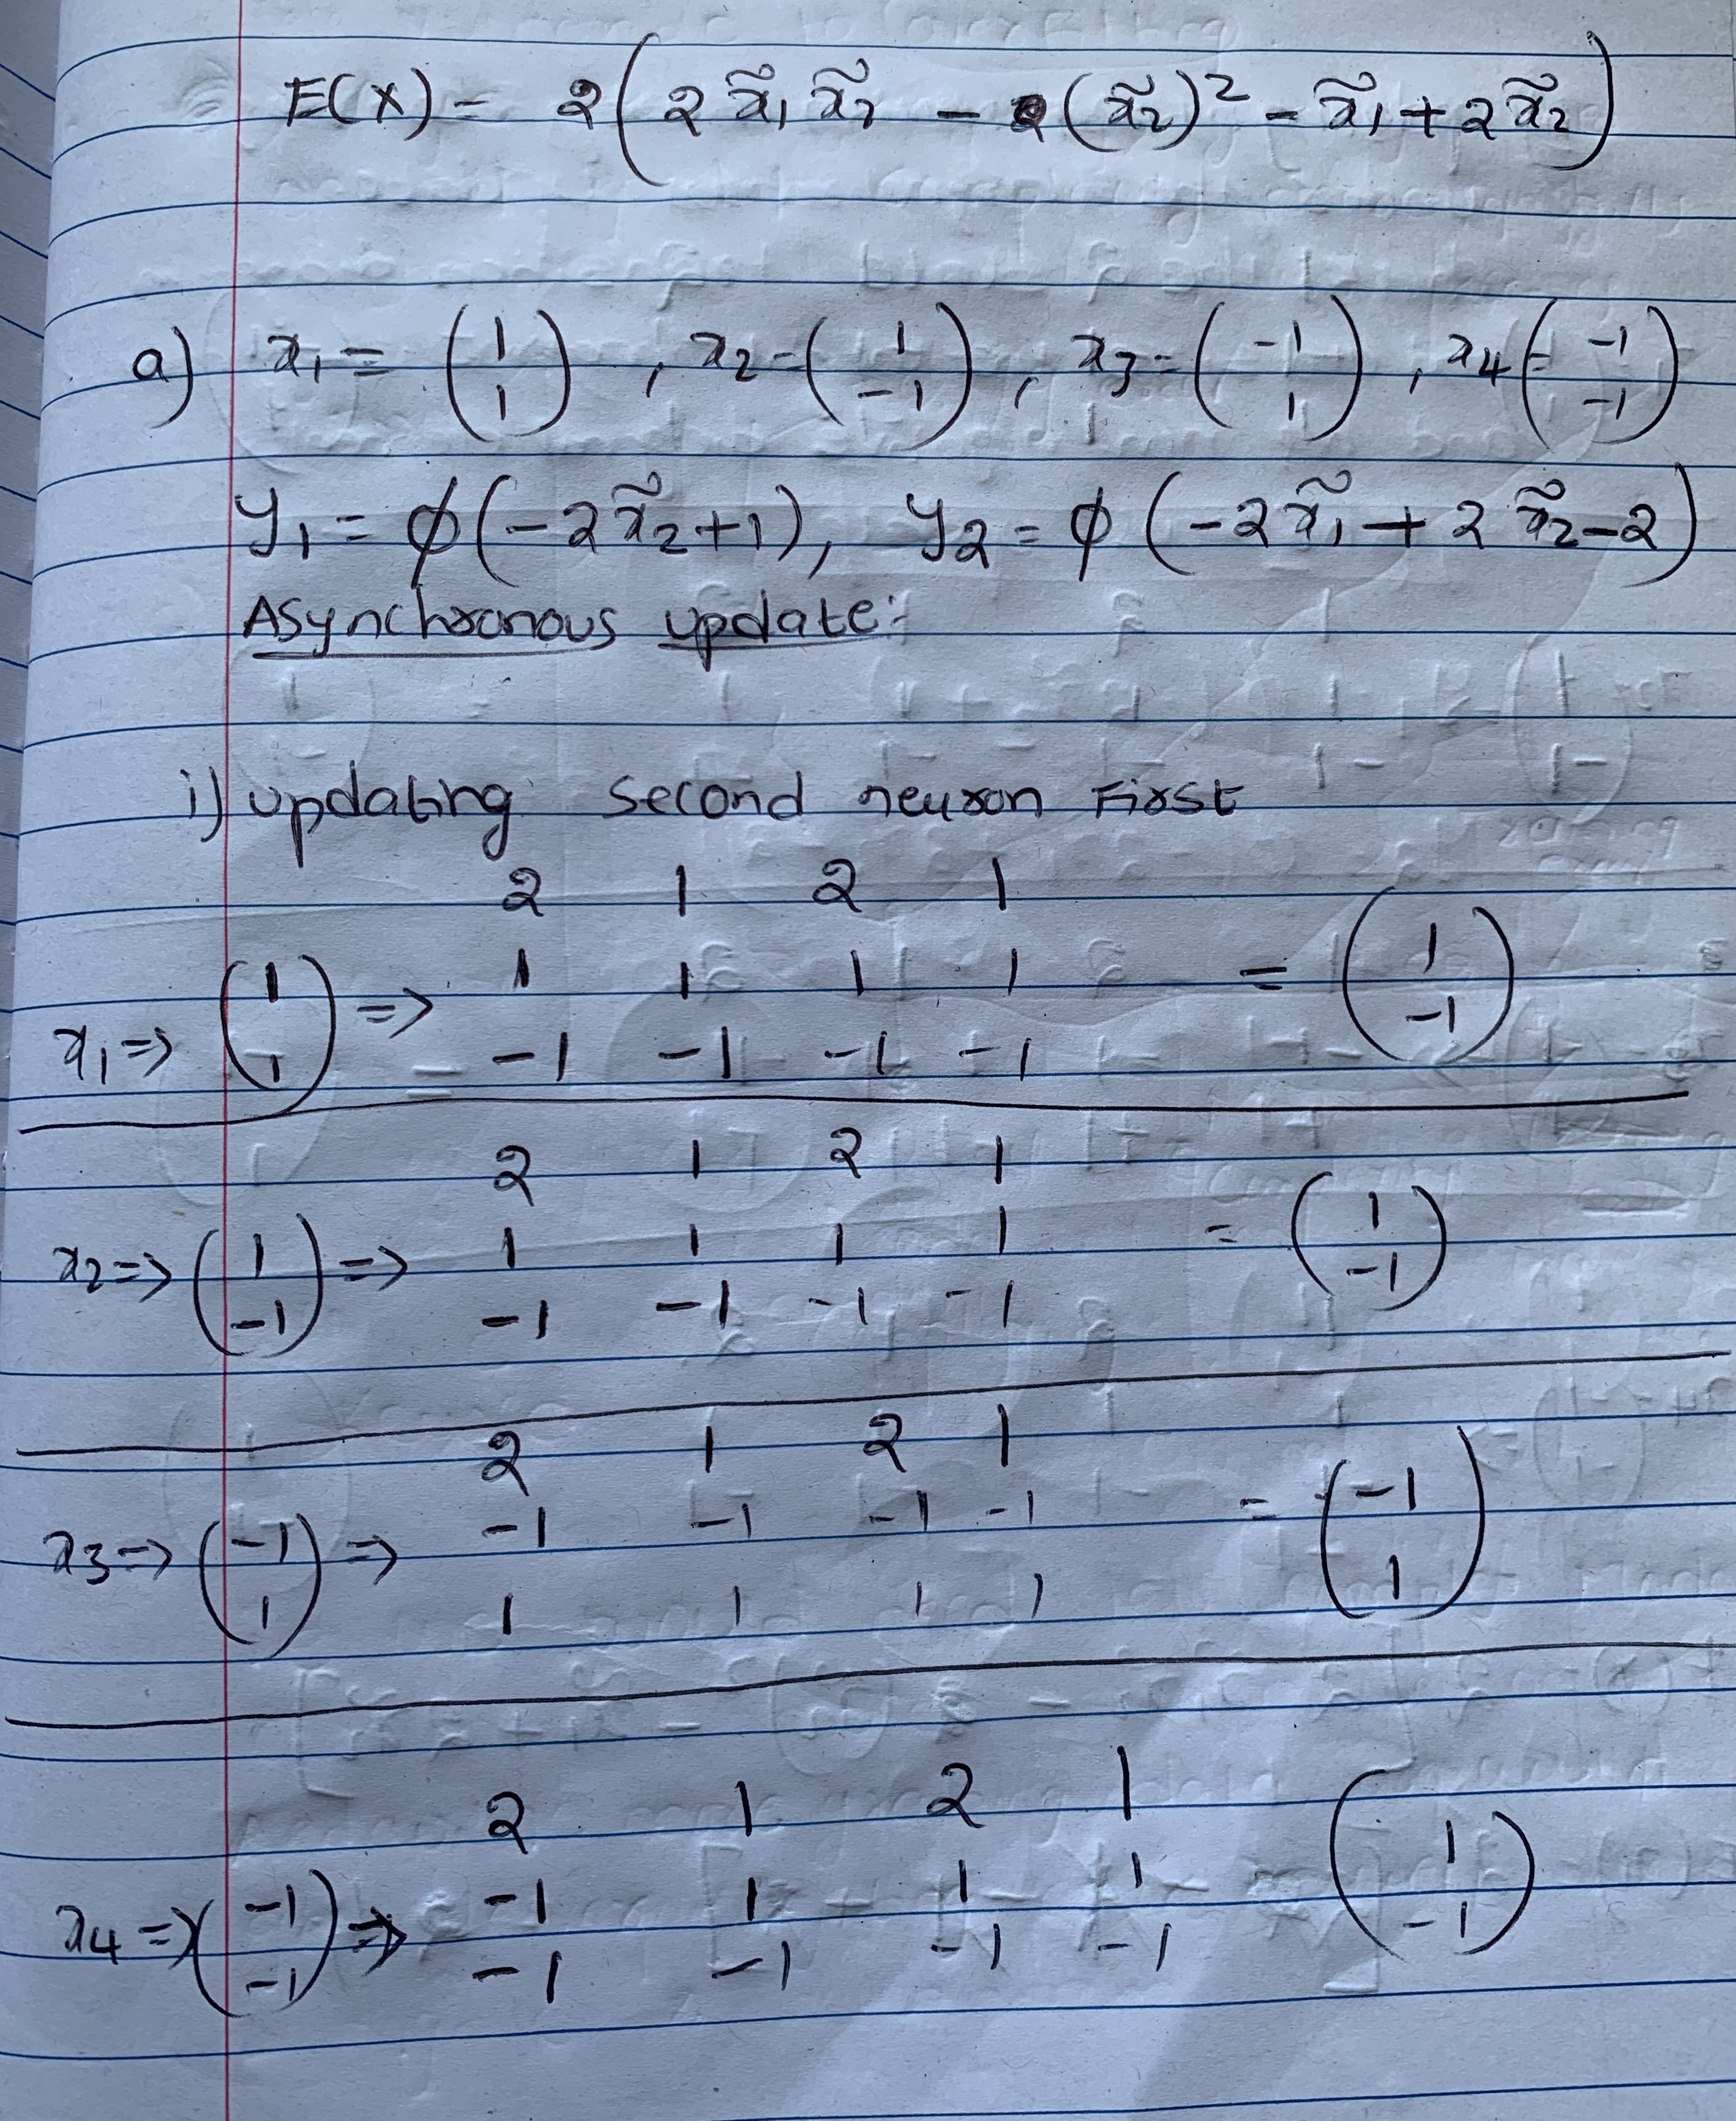 E(X) = 2(2x̃₁x̃₂ - (x̃₂)² - x̃₁ + 2x̃₂)
a) x₁ = (1 1), x₂ = (1 -1), x₃ = (-1 1), x₄ = (-1 -1)
y₁ = ϕ(-2x̃₂+1), y₂ = ϕ(-2x̃₁ + 2x̃₂-2)
Asynchronous update:
i) updating second neuron First
2 1 2 1
x₁ => (1 1) => 1 1 1 1 = (1 -1)
-1 -1 -1 -1
2 1 2 1
x₂ => (1 -1) => 1 1 1 1 = (1 -1)
-1 -1 -1 -1
2 1 2 1
x₃ => (-1 1) => -1 -1 -1 -1 = (-1 1)
1 1 1 1
2 1 2 1
x₄ => (-1 -1) => -1 1 1 1 (1 -1)
-1 -1 -1 -1